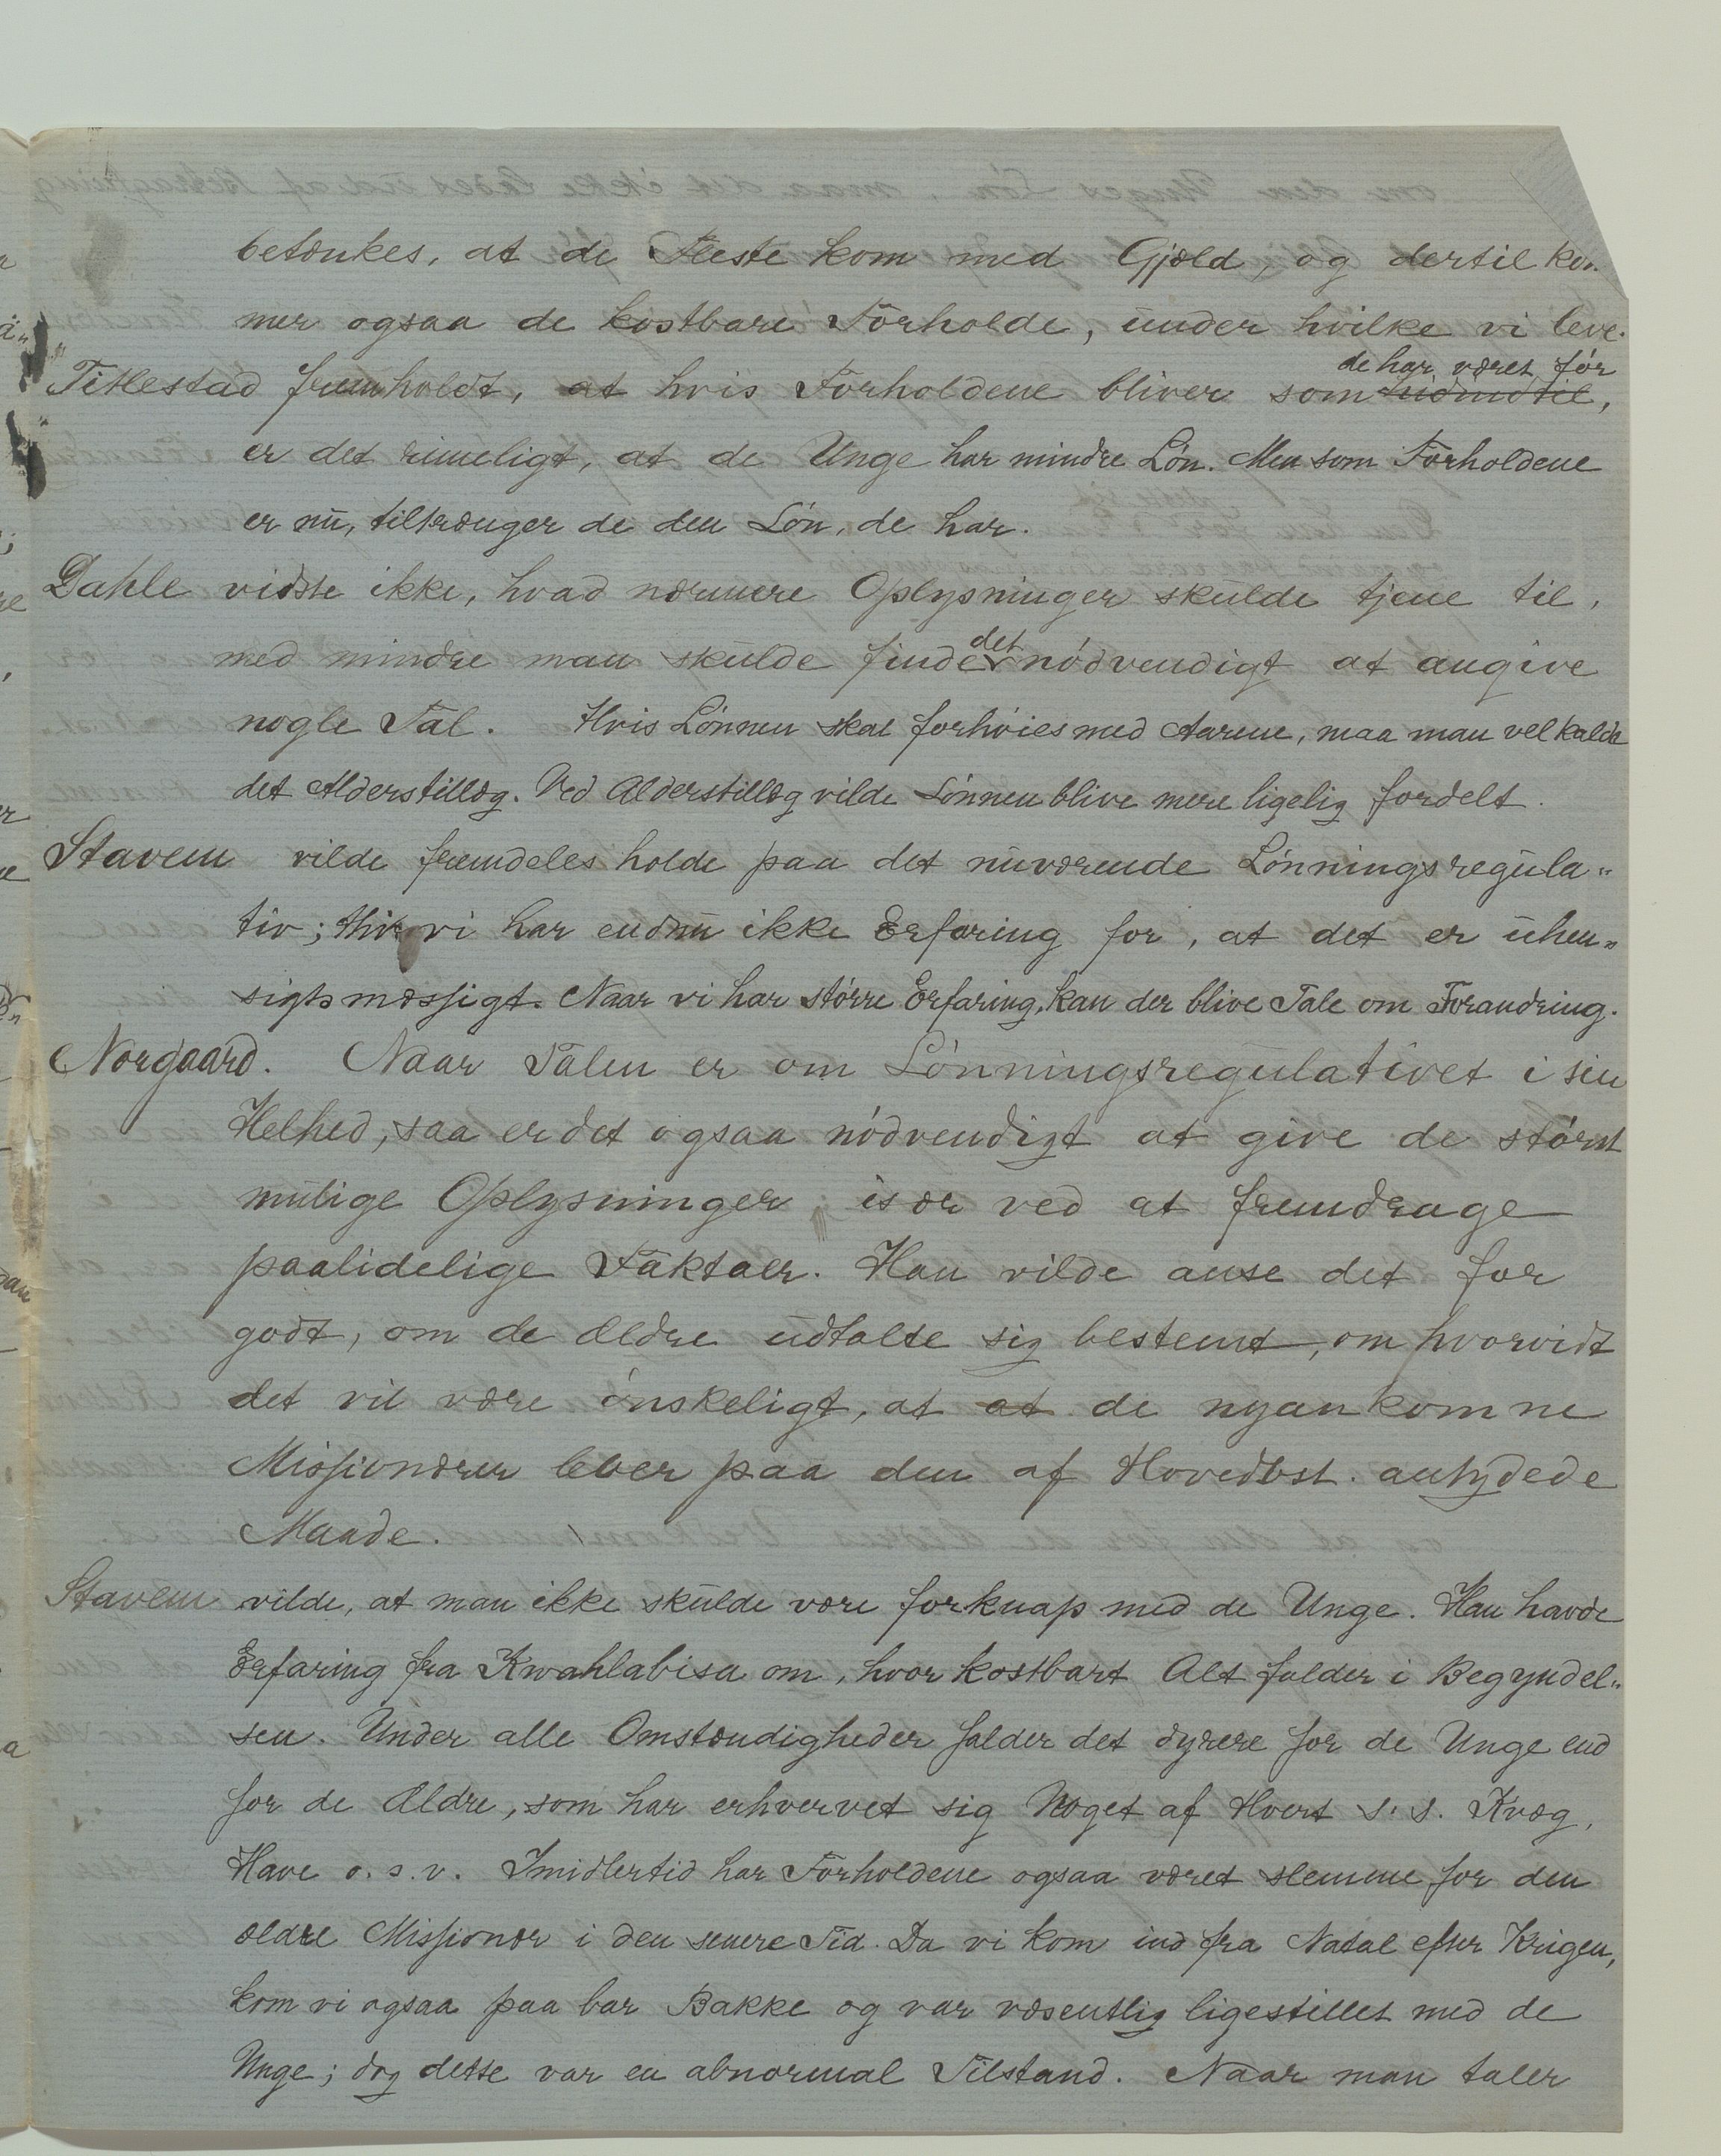 betænkes, at de Fleste kom med Gjæld, og dertil kom
mer ogsaa de kostbare Forholde, under hvilke vi leve.
de har været før
Titlestad fremholdt, at hvis Forholdene bliver som hidindtil,
er det rimeligt, at de Unge har mindre Løn. Men som Forholdene
er nu, tiltrænger de den Løn, de har.
Dahle vidste ikke, hvad nærmere Oplysninger skulde tjene til,
det
med mindre man skulde finde nødvendigt at angive
nogle Tal. Hvis Lønnen skal forhøies med Aarene, maa man vel kalde
det Alderstillæg. Ved Alderstillæg vilde Lønnen blive mere ligelig fordelt.
Stavem vilde fremdeles holde paa det nuværende Lønningsregula„
tiv; thi vi har endnu ikke Erfaring for, at det er uhen„
sigtsmæssigt. Naar vi har større Erfaring, kan der blive Tale om Forandring.
Norgaard. Naar Talen er om Lønningsregulativet i sin
Helhed, saa er det ogsaa nødvendigt at give de størst
mulige Oplysninger, især ved at fremdrage
paalidelige Faktaer. Han vilde anse det for
godt, om de Ældre udtalte sig bestemt, om hvorvidt
det vil være ønskeligt, at at de nyankomne
Missionærer lever paa den af Hovedbst. antydede
Maade.
Stavem vilde, at man ikke skulde være forknap med de Unge. Han havde
Erfaring fra Kwahlabisa om, hvor kostbart Alt falder i Begyndel„
sen. Under alle Omstændigheder falder det dyrere for de Unge end
for de Ældre, som har erhvervet sig Noget af Hvert s. s. Kvæg,
Have o. s. v. Imidlertid har Forholdene ogsaa været slemme for den
ældre Missionær i den senere Tid. Da vi kom ind fra Natal efter Krigen,
kom vi ogsaa paa bar Bakke og var væsentlig ligestillet med de
Unge; dog dette var en abnormal Tilstand. Naar man taler